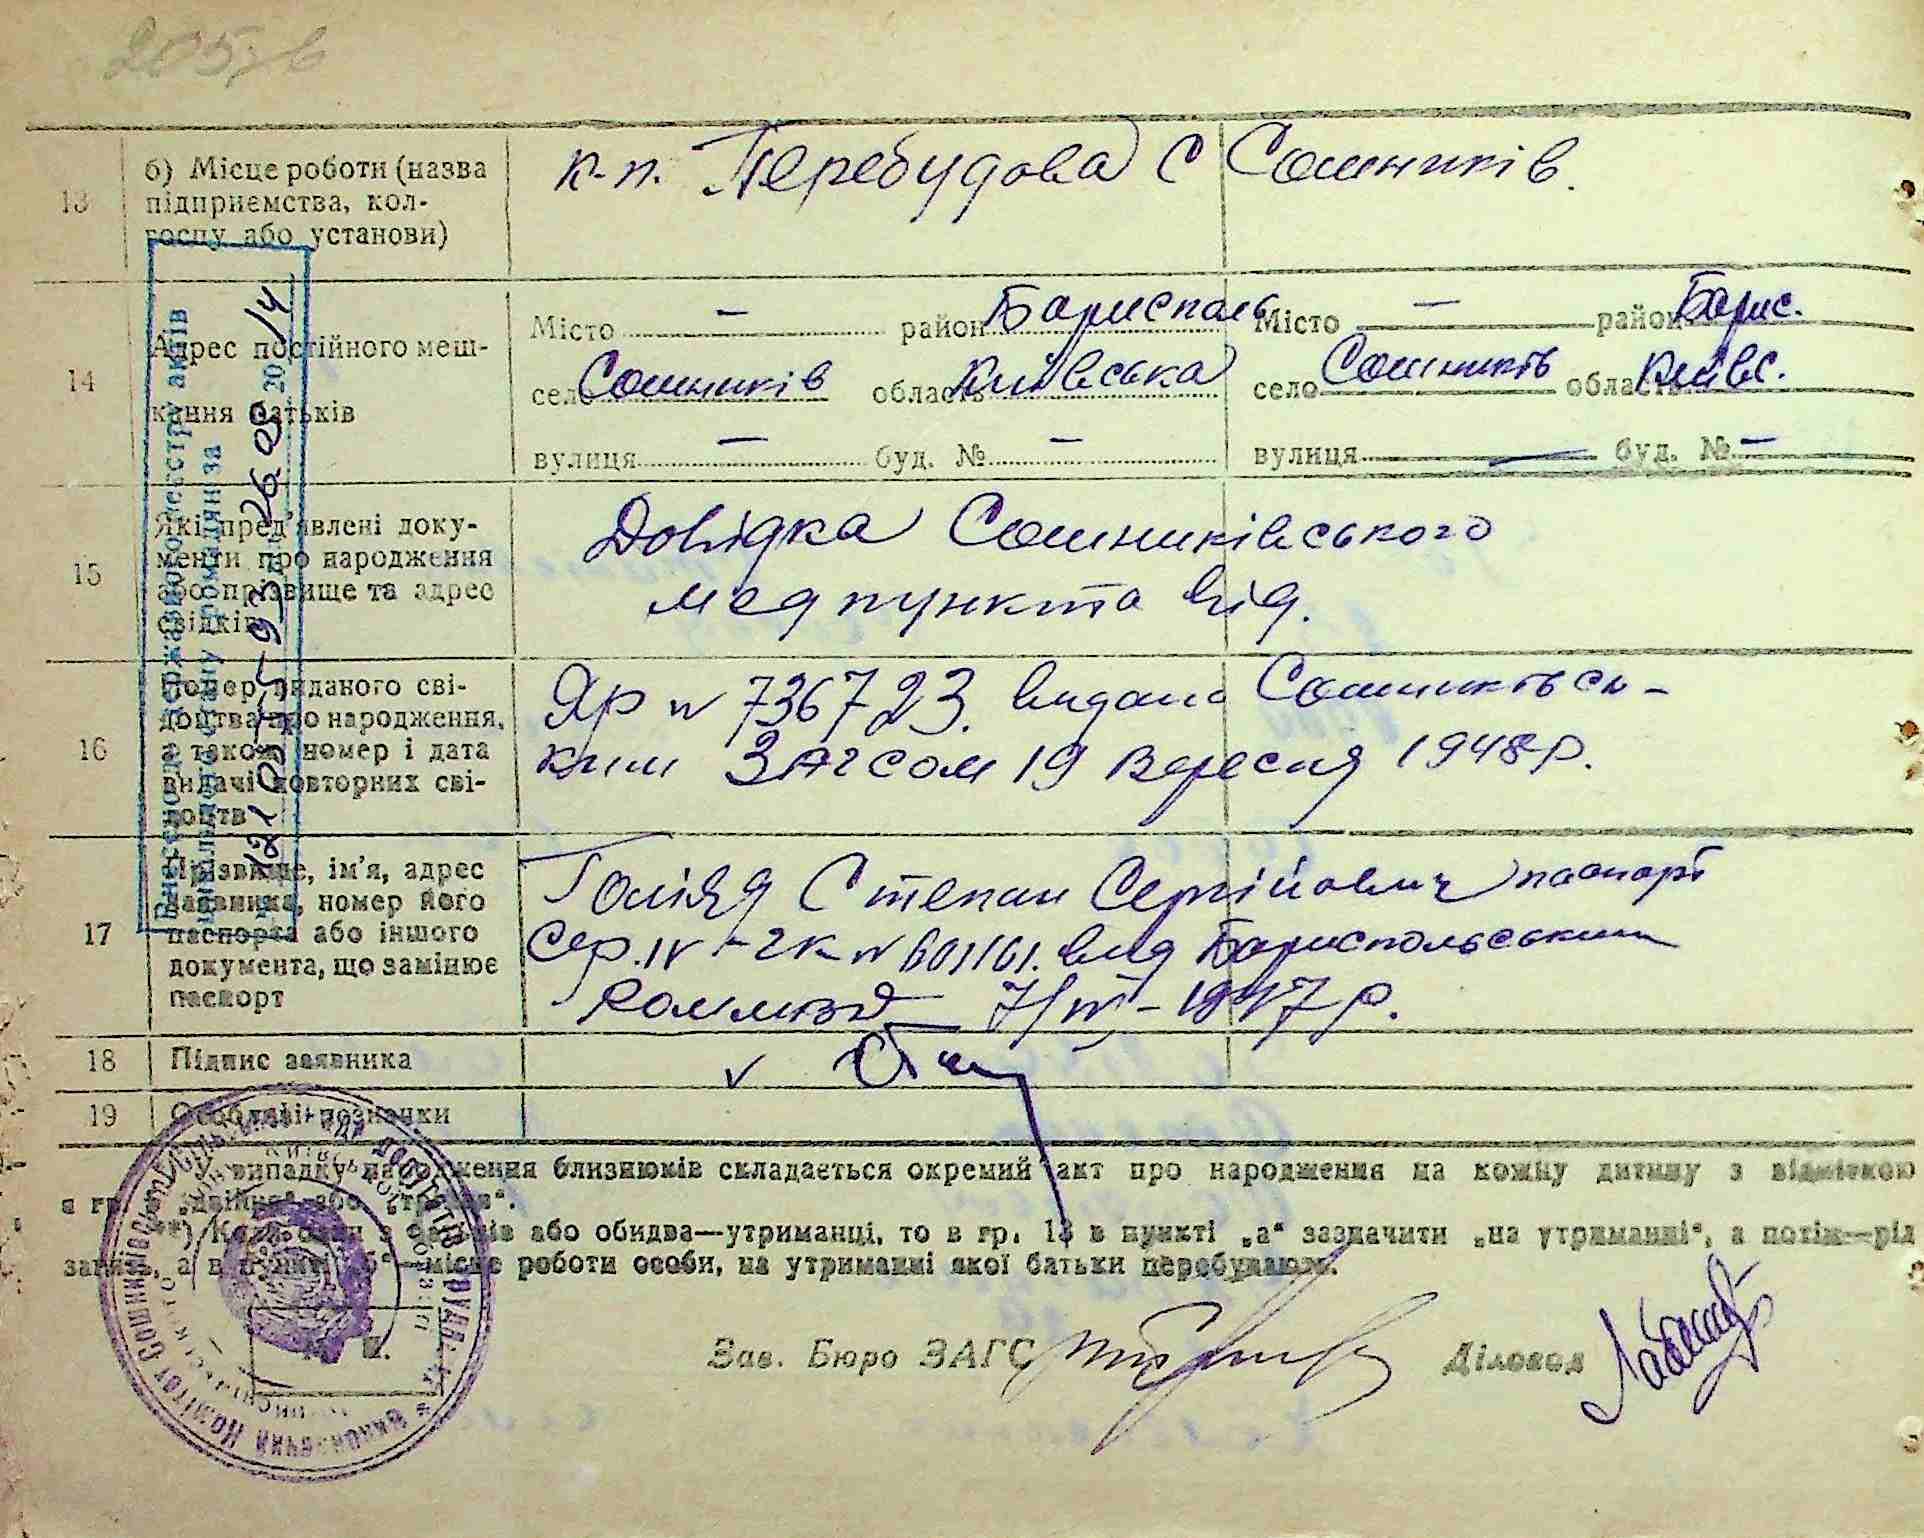 205
13
б) Місце роботи (назва
підприємства, кол-
госпу або установи)
к-п. Перебудова С Сошників.
14
Адрес постійного меш-
кання батьків
Місто — район Бариспаль Місто — район Барис.
село Сошників область Київська село Сошників область Київс.
вулиця — буд. № — вулиця — буд. № —
15
Які пред'явлені доку-
менти про народження
або прізвище та адрес
свідків
Довідка Сошниківського
медпункта від.
16
Номер виданого сві-
доцтва про народження,
а також номер і дата
видачі повторних сві-
доцтв
Яр № 736723. видано Сошниківсь-
ким ЗАГСом 19 вересня 1948 р.
17
Прізвище, ім'я, адрес
заявника, номер його
паспорта або іншого
документа, що замінює
паспорт
Голіяд Степан Сергійович паспорт
Сер. IV-гк № 601161. вид Бариспольським
1947 р.
18
Підпис заявника
19
Особливі позначки
У випадку народження близнюків складається окремий акт про народження на кожну дитину з відміткою
в гр. „двійня" або „трійня".
**) Коли один з батьків або обидва—утриманці, то в гр. 13 в пункті „а" зазначити „на утриманні", а потім—рід
занять, а в пункті „б"—місце роботи особи, на утриманні якої батьки перебувають.
Зав. Бюро ЗАГС
Діловод
М. П.
Внесено до Державного реєстру актів
цивільного стану громадян за
26 09 2014
Виконавчий Комітет Сошниківської сільської Ради депутатів трудящих